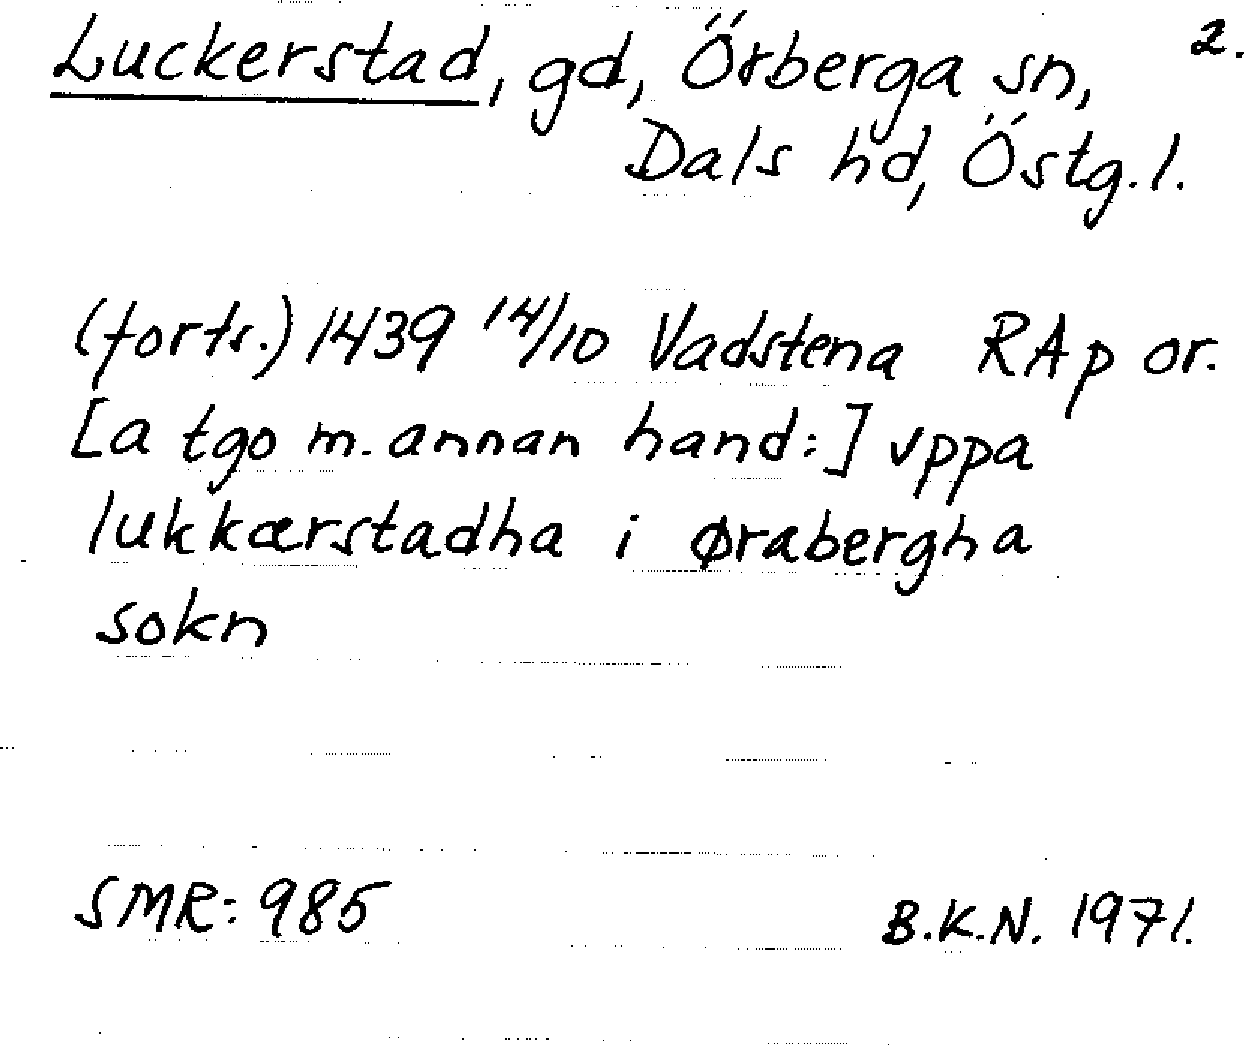 Luckerstad, gd, Örberga sn, 2.
Dals hd, Östg.l.
(forts.) 1439 14/10 Vadstena RAp or.
[a tgo m. annan hand:] vppa
lukkærstadha i ørabergha
sokn
SMR: 985 B.K.N. 1971.